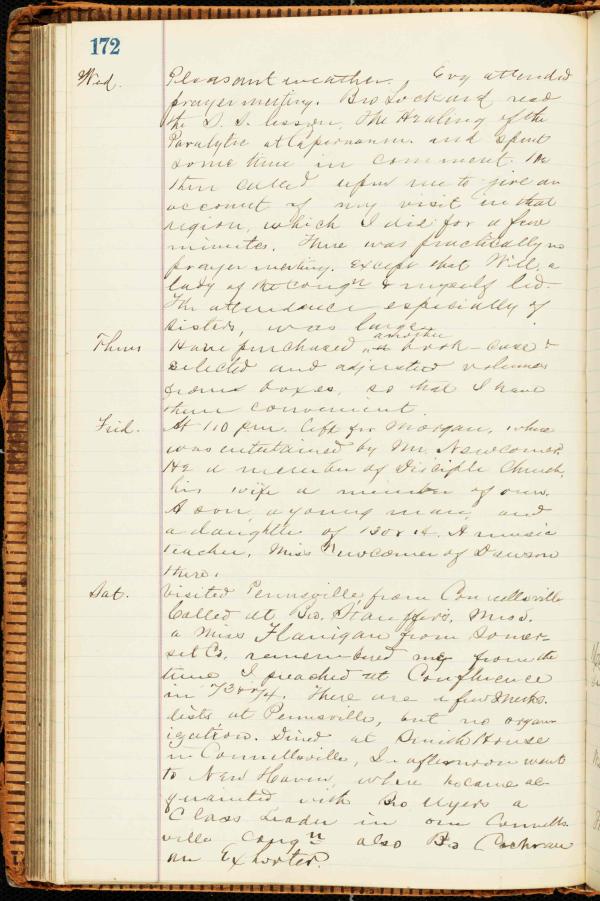 172
Wed. Pleasant weather. Evg attended
prayer meeting. Bro Lockard read
the S. S. lesson, The Healing of the
Paralytic at Capernaum and spent
some time in comment. He
then called upon me to give an
account of my visit in that
region, which I did for a few
minutes. There was practically no
prayer meeting. Except that Will, a
lady of the congn & myself led.
The attendance especially of
sisters, was large.
Thurs Have purchased another book-case &
selected and adjusted volumes
from boxes, so that I have
them convenient.
Frid. At 1.10 p.m. left for Morgan, where
was entertained by Mr. Newcomer.
He a member of Disciple Church,
his wife a member of ours.
A son, a young man, and
a daughter of 13 or 14. A music
teacher, Miss Newcomer of Dawson
there.
Sat. Visited Pennsville from Connellsville
Called at Bro. Stauffer's.
a Miss Flanigan from Somer-
set Co. remembered me from the
time I preached at Confluence
in '73 & 74. There are a few Metho-
dists at Pennsville, but no organ-
ization. Dined at Smith House
in Connellsville, In afternoon went
to New Haven where became ac-
quainted with Bro Myers a
Class Leader in our Connells-
ville congn also Bro Cochran
an Exhorter.